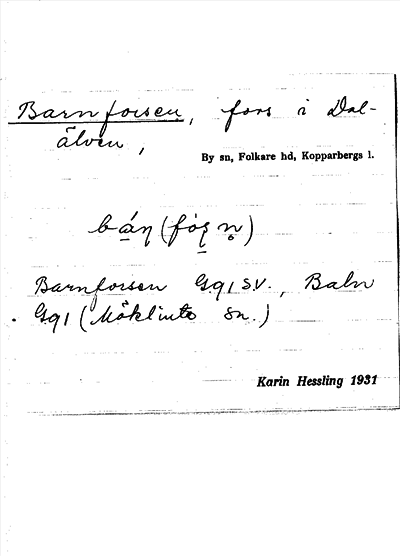 Barnforsen, fors i Dal-
älven,
By sn, Folkare hd, Kopparbergs l.
bá̱ɳ (fó̱ʂɳ̥)
Barnforsen Gq1 S.V., Baln
Gq1 (Möklinta sn.)
Karin Hessling 1931